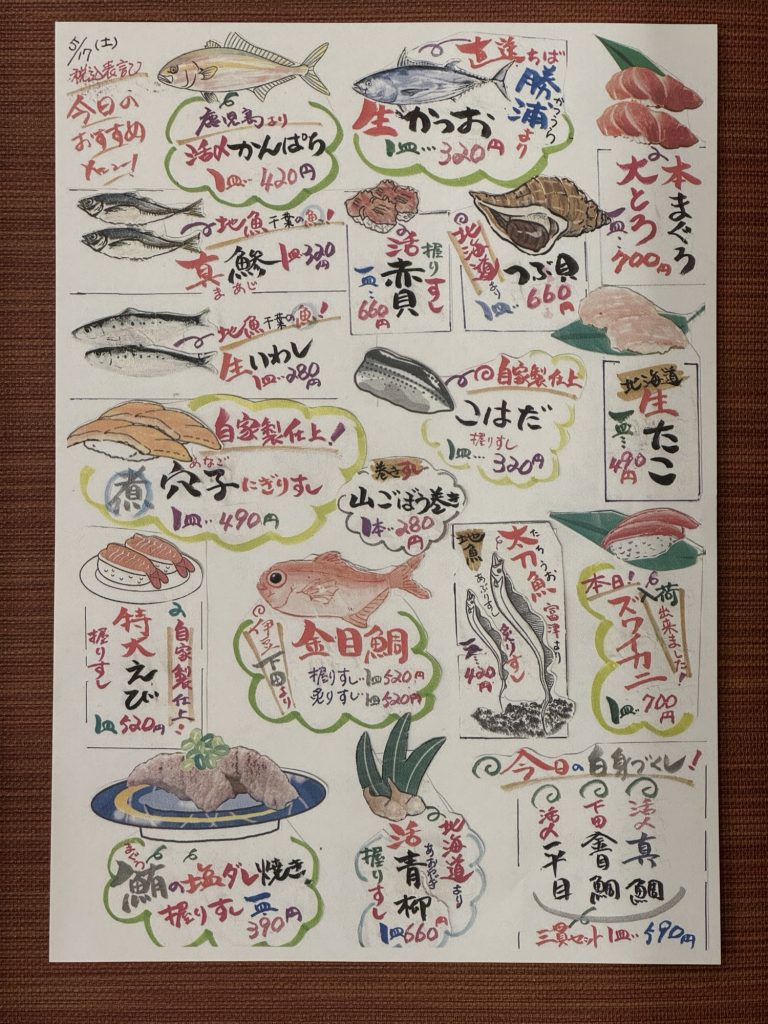 5/17(土)
税込表記
今日の
おすすめ
メニュー!
鹿児島より
活〆かんぱち
1皿…420円
直送ちば
勝浦より
かつうら
生かつお
1皿…320円
本まぐろ
大とろ
一皿…700円
地魚千葉の魚!
真鯵
まあじ
1皿320円
握りすし
活赤貝
一皿…660円
北海道より
つぶ貝
1皿…660円
地魚千葉の魚!
生いわし
1皿…280円
自家製仕上
こはだ
握りすし
1皿…320円
北海道
生たこ
一皿…490円
自家製仕上!
あなご
煮穴子にぎりすし
1皿…490円
巻きすし
山ごぼう巻き
1本…280円
自家製仕上!
特大えび
握りすし
1皿520円
伊豆下田より
金目鯛
握りすし…1皿520円
炙りすし…1皿520円
地魚
たちうお
太刀魚
富津より
あぶりすし
炙りすし
一皿…420円
本日!入荷
出来ました!
ズワイカニ
1皿…700円
まぐろ
鮪の塩ダレ焼き
握りすし一皿…
390円
北海道より
あおやぎ
活青柳
握りすし
1皿660円
今日の白身づくし!
活〆真鯛
下田金目鯛
活〆平目
三貫セット1皿…590円